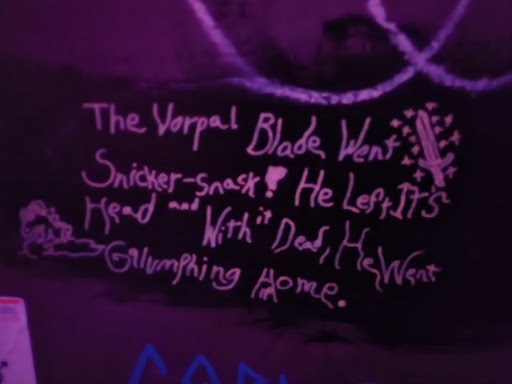 The Vorpal Blade Went
Snicker-snack! He Left It's
Head and With it Dead, He Went
Galumphing Home.